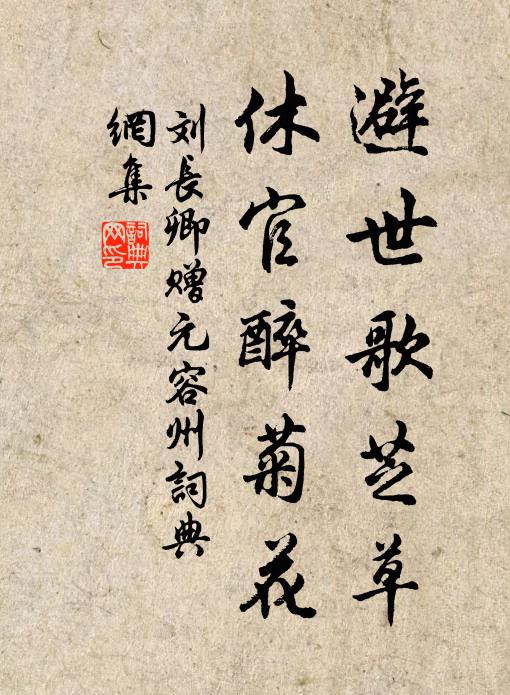 避世歌芝草
休官醉菊花
刘長卿赠元容州詞典
網集
詞典
网印